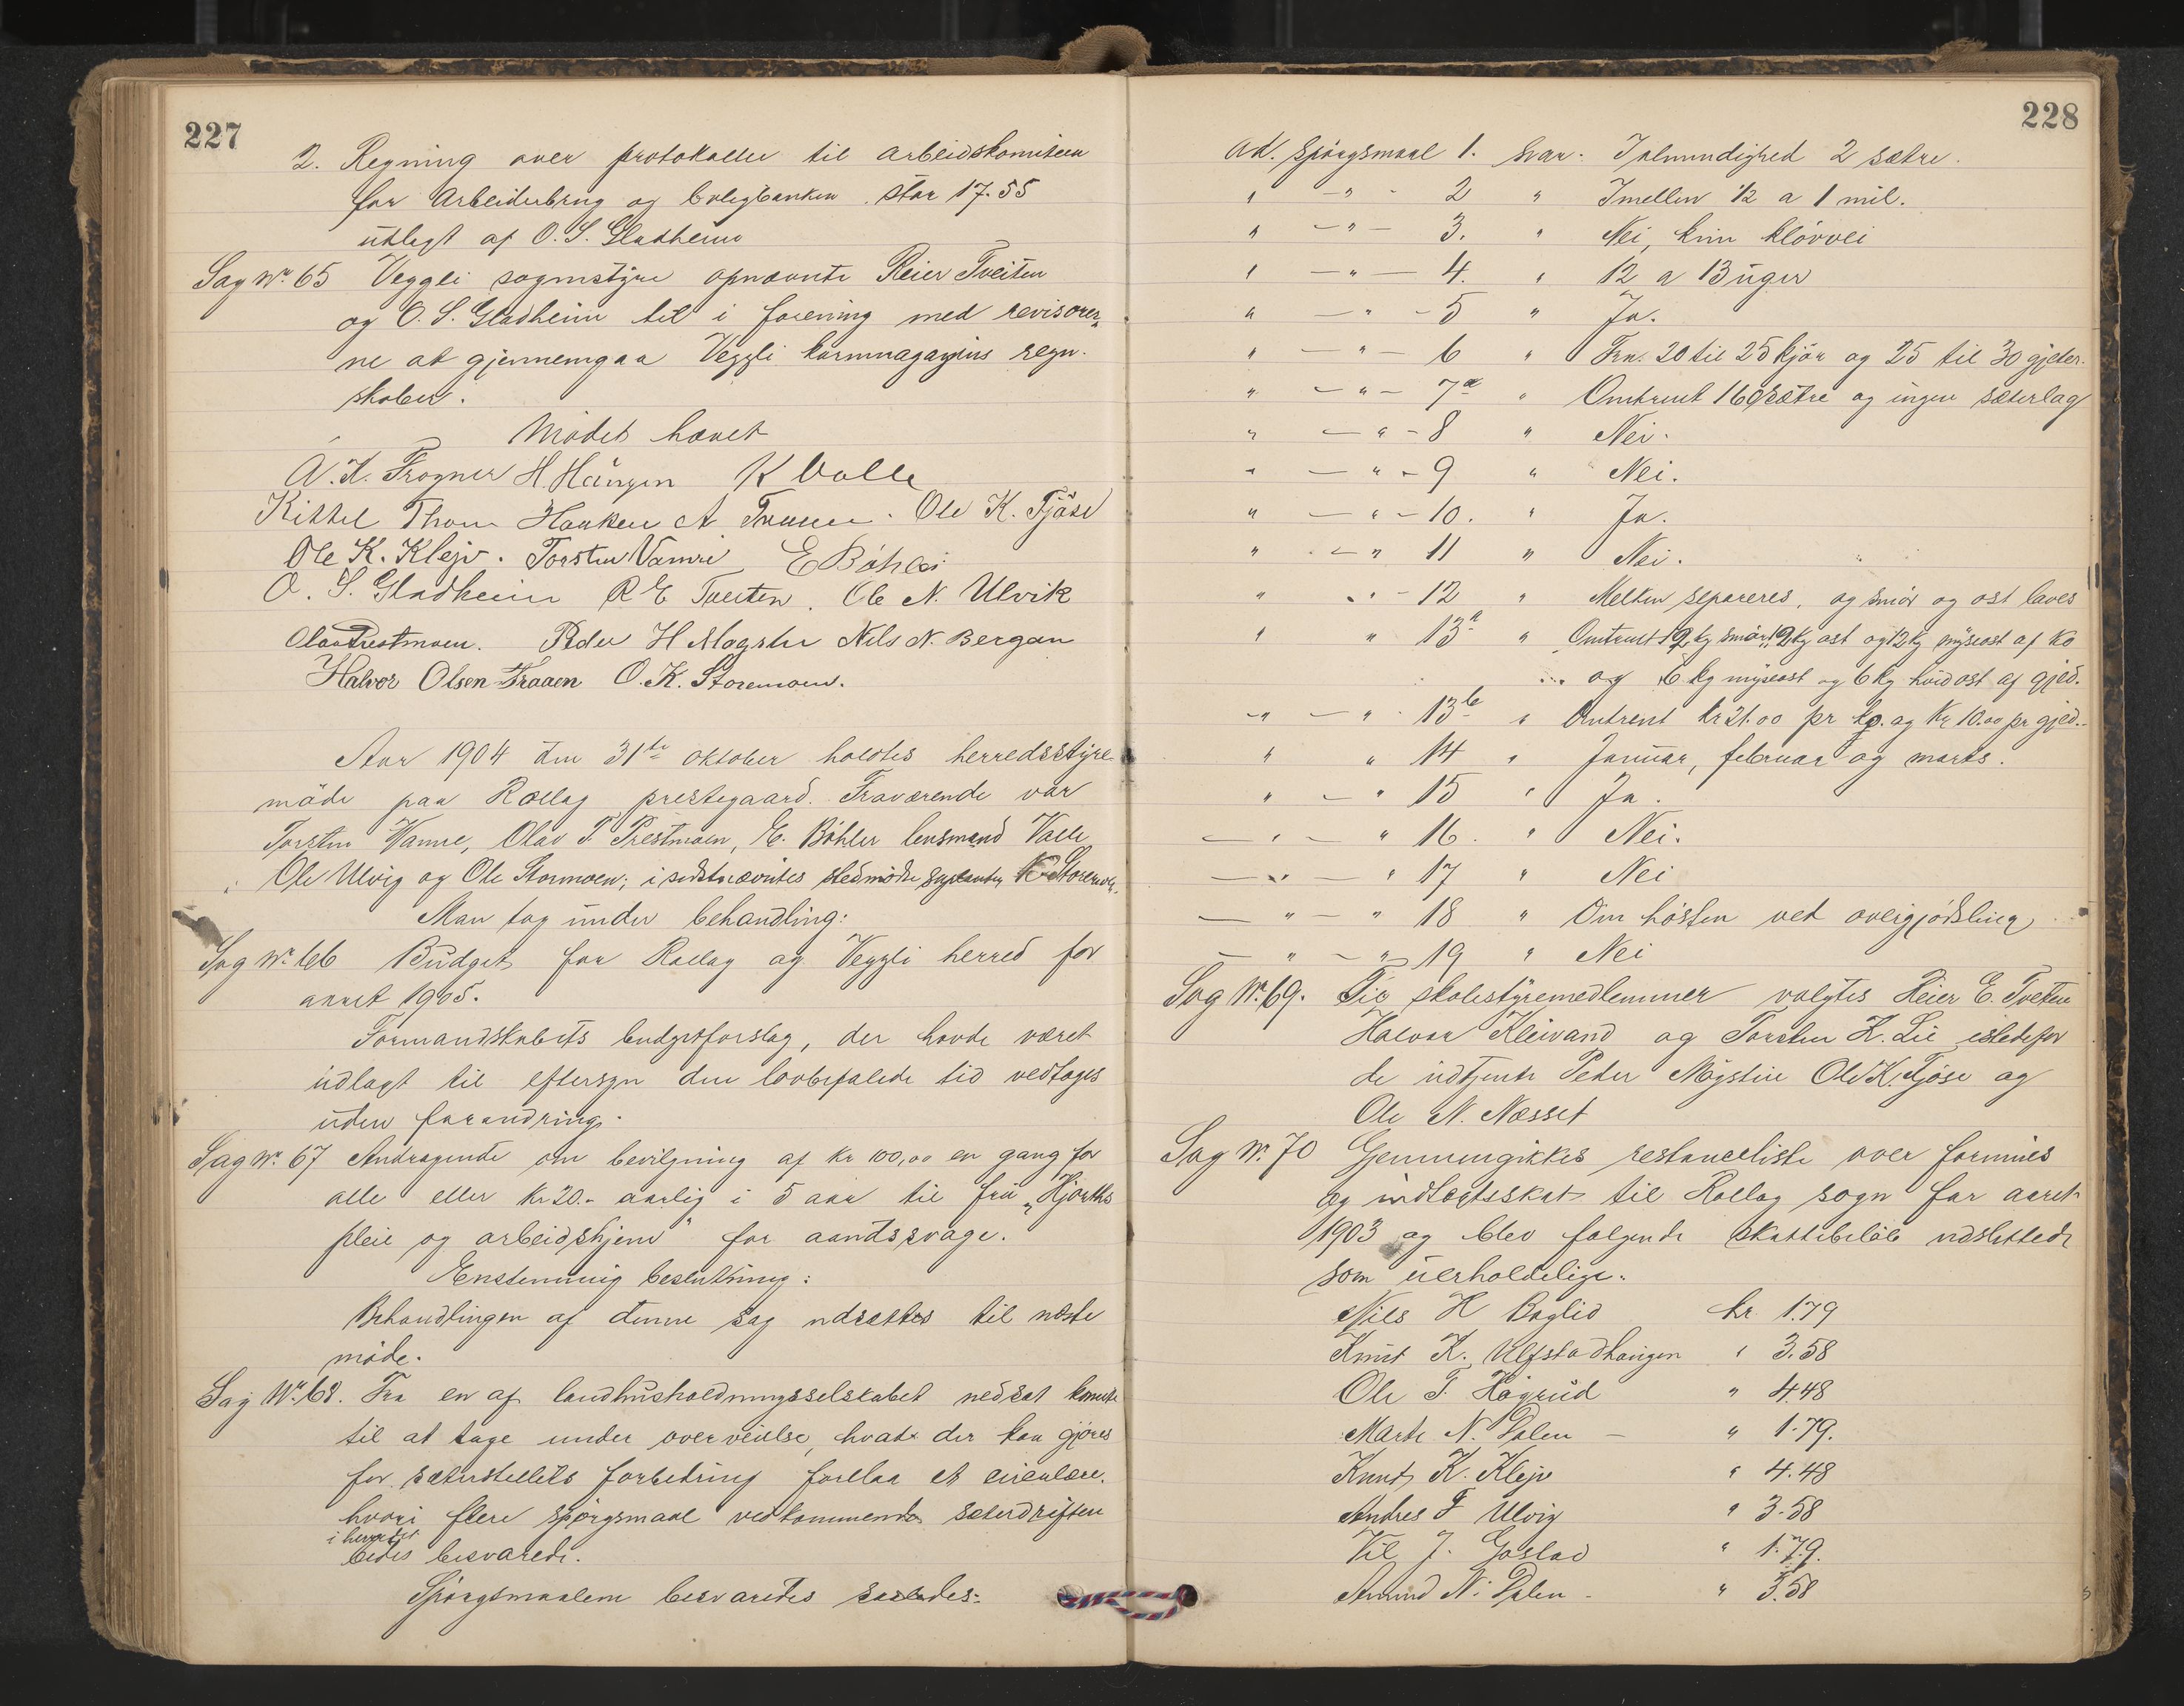 227
2. Regning over protokoller til arbeidskomiteen
for Arbeiderbrug og boligbanken. stor 17.55
udlagt af O. S. Gladheim
Sag Nr. 65 Veggli sognstyre opnævnte Reier Tveiten
og O. S. Gladheim til i forening med revisorer„
ne at gjennemgaa Veggli kornmagazins regn.
skaber.
Mødet hævet
A. K. Frogner H. Haugen K Valle
Kittel Thom Hauken A Traaen. Ole K. Fjøse
Ole K. Klejv. Torsten Vamre E Böhler
O. S. Gladheim R E Tveiten. Ole N. Ulvik
Olav Prestmoen. Peder H Mogster Nils N. Bergan
Halvor Olsen Fraaen O. K. Storemoen.
Aar 1904 den 31te oktober holdtes herredsstyre
møde paa Rollag prestegaard. Fraværende var
Torsten Vamre, Olav P. Prestmoen, E. Böhler lensmand Valle
Ole Ulvig og Ole Stormoen; i sidstnævntes sted mødte suplanten K Storemoen.
Man tog under behandling:
Sag Nr. 66 Budget for Rollag og Veggli herred for
aaret 1905.
Formandskabets budgetforslag, der havde været
udlagt til eftersyn den lovbefalede tid vedtoges
uden forandring.
Sag Nr. 67 Andragende om bevilgning af kr 100,00 en gang for
alle eller kr 20.- aarlig i 5 aar til fru „Hjorths
pleie og arbeidshjem" for aandssvage.
Enstemmig beslutning:
Behandlingen af denne sag udsattes til næste
møde.
Sag Nr. 68. Fra en af landhusholdningsselskabet nedsat komite
til at tage under overveielse, hvad der kan gjøres
for sæterstellets forbedring forelaa et cirkulære.
hvori flere spørgsmaal vedkommende sæterdriften
i herredet
bedes besvarede.
Spørgsmaalene besvaredes saaledes:
228
Ad. Spørgsmaal 1. Svar. I almindighed 2 sætre.
" - " - 2 " Imellem 1/2 a 1 mil.
" - " - 3. " Nei, kun kløvvei
" - " - 4. " 12 a 13 uger
" - " - 5 " Ja.
" - " - 6 " Fra. 20 til 25 kjør og 25 til 30 gjeter.
" - " - 7a " Omtrent 160 sætre og ingen sæterlag
" - " - 8 " Nei.
" - " - 9 " Nei.
" - " - 10. " Ja.
" - " 11 " Nei.
" " - 12 " Melken separeres, og smør og ost laves
" " 13a " Omtrent 12 kg smør, 12 kg ost og 12 kg myseost af ko
og 6 kg myseost og 6 kg hvidost af gjed.
" - " 13b " Omtrent kr 21.00 pr ko. og kr 10.00 pr gjed.
" " 14 " Januar, februar og marts.
" - " 15 " Ja.
- " - " 16. " Nei.
- " - " 17 " Nei
- " - " 18 " Om høsten ved overgjødsling
- " - " 19 " Nei
Sag Nr. 69. Til skolestyremedlemmer valgtes Reier E. Tveten
Halvor Kleivand og Torsten H. Lie istedefor
de udtjente Peder Mogstue Ole K. Fjøse og
Ole N. Næsset
Sag Nr. 70 Gjennemgikkes restanceliste over formues
og indtægtsskat til Rollag sogn for aaret
1903 og blev følgende skattebeløb udslettede
som uerholdelige.
Nils H Baglid kr. 1.79
Knut K. Ulfstadhaugen " 3.58
Ole T. Høgrud " 4.48
Marte N. Dalen - " 1.79.
Knud K. Klejv " 4.48
Andres F Ulvig " 3.58
Kil J. Goslad " 1.79.
Amund N. Dalen - " 3.58